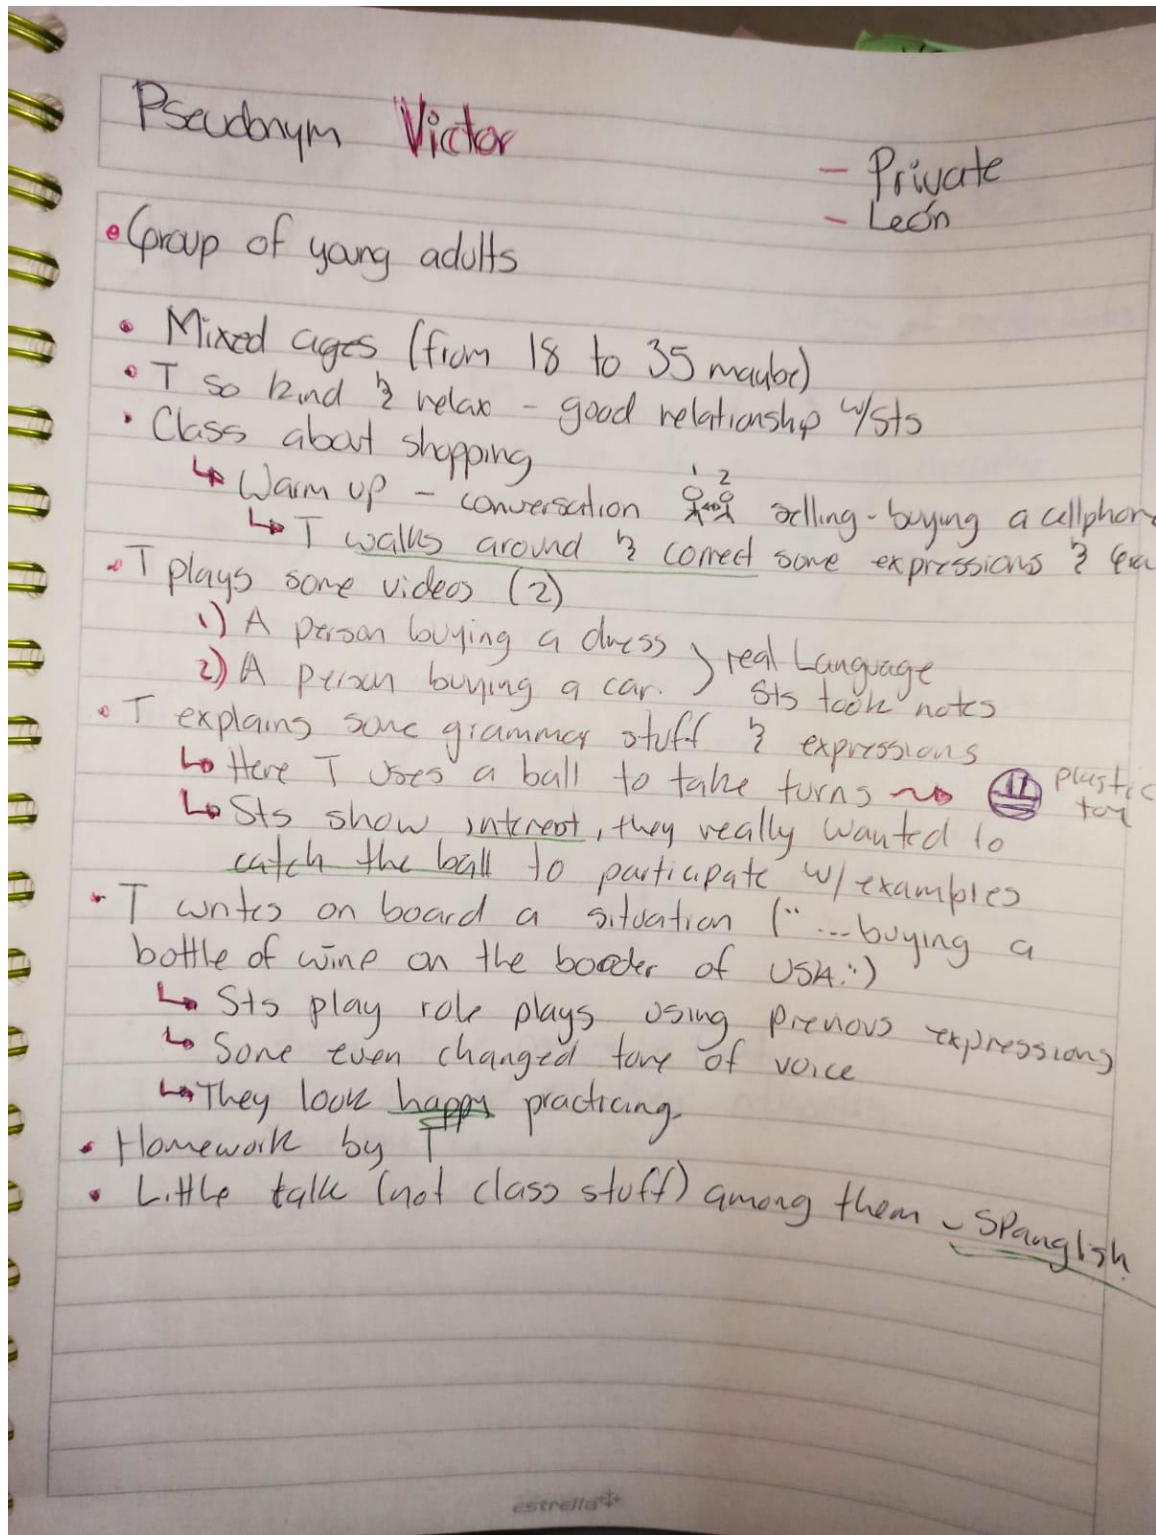 Pseudonym Victor
- Private
- León
• Group of young adults
• Mixed ages (from 18 to 35 maybe)
• T so kind & relax - good relationship w/sts
• Class about shopping
↳ Warm up - conversation 1 2 selling-buying a cellphon
↳ T walks around & correct some expressions &
• T plays some videos (2)
1) A person buying a dress
2) A person buying a car.
real Language
Sts took notes
• T explains some grammar stuff & expressions
↳ Here T uses a ball to take turns plastic toy
↳ Sts show interest, they really wanted to
catch the ball to participate w/ examples
• T writes on board a situation ("...buying a
bottle of wine on the border of USA.")
↳ Sts play role plays using previous expressions
↳ Some even changed tone of voice
↳ They look happy practicing
• Homework by T
• Little talk (not class stuff) among them - Spanglish
estrella